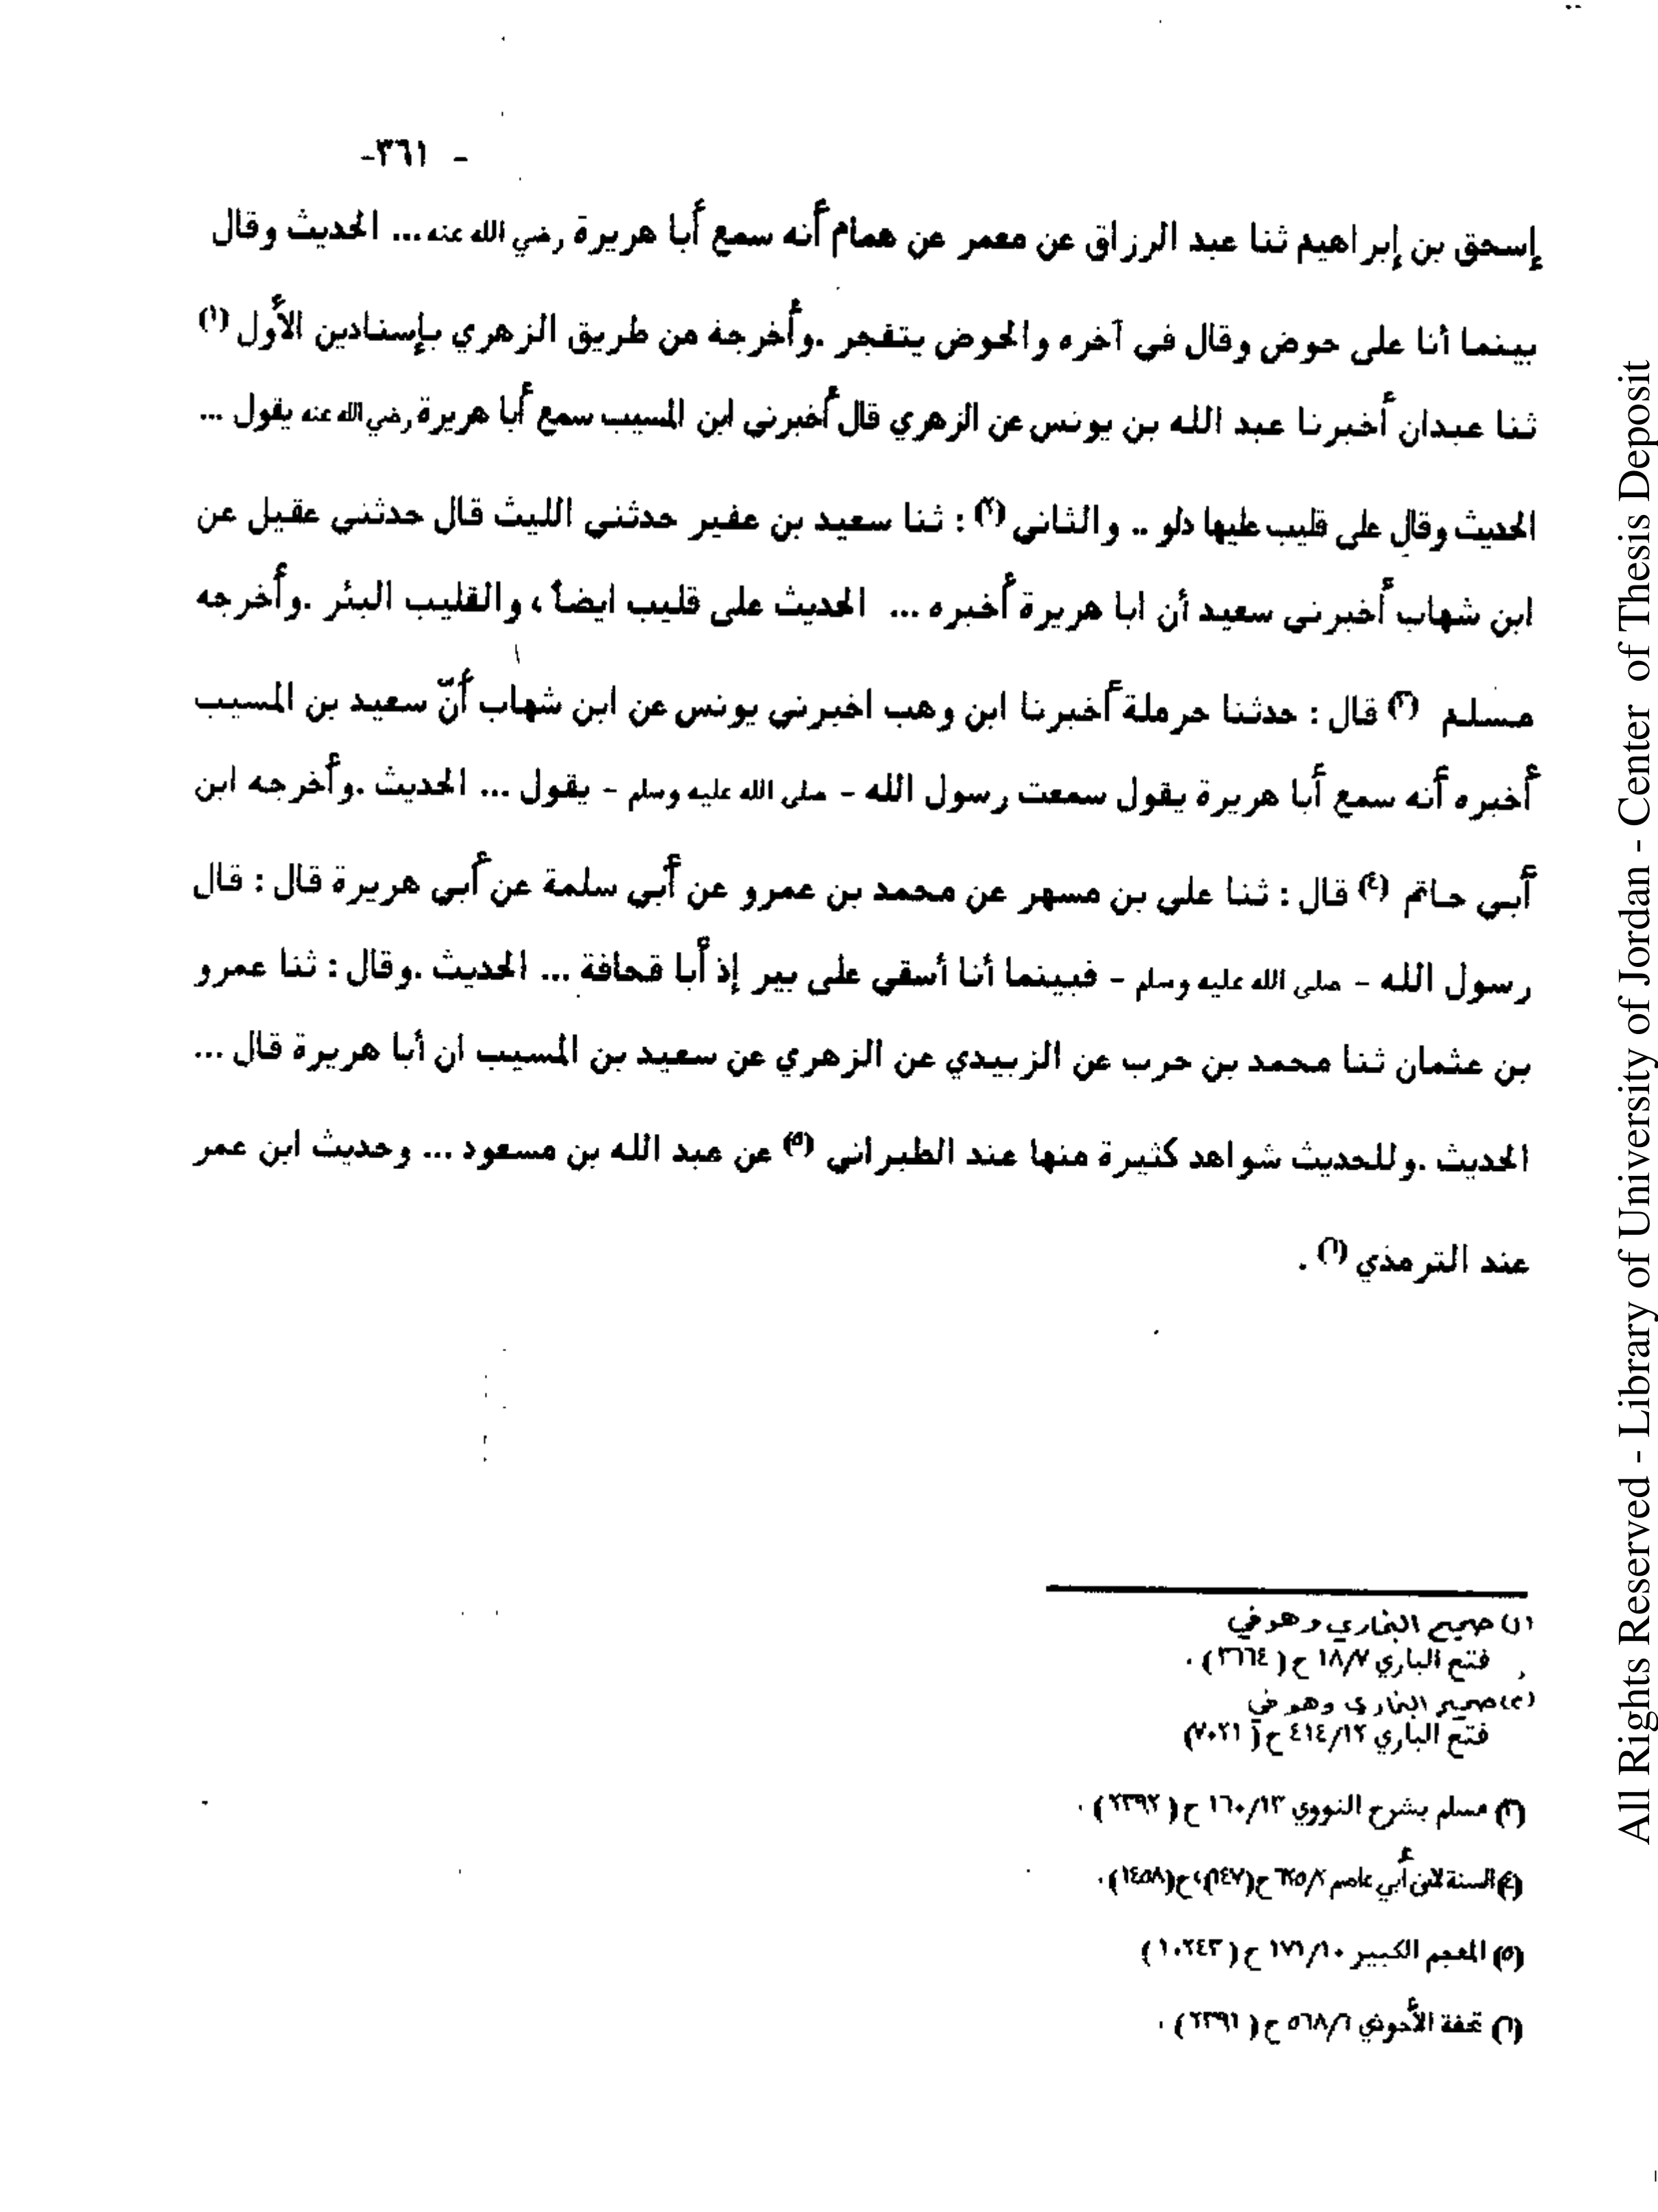 - ٣٦١-
إسحق بن إبراهيم ثنا عبد الرزاق عن معمر عن همام أنه سمع أبا هريرة رضي الله عنه ... الحديث وقال
بينما أنا على حوض وقال في آخره والحوض يتفجر .وأخرجه من طريق الزهري بإسنادين الأول (١)
ثنا عبدان أخبرنا عبد الله بن يونس عن الزهري قال أخبرني ابن المسيب سمع أبا هريرة رضي الله عنه يقول ...
الحديث وقال على قليب عليها دلو .. والثاني (٢) : ثنا سعيد بن عفير حدثني الليث قال حدثني عقيل عن
ابن شهاب أخبرني سعيد أن ابا هريرة أخبره ... الحديث على قليب ايضاً ، والقليب البئر .وأخرجه
مسلم (٣) قال : حدثنا حرملة أخبرنا ابن وهب اخبرني يونس عن ابن شهاب أنّ سعيد بن المسيب
أخبره أنه سمع أبا هريرة يقول سمعت رسول الله - صلى الله عليه وسلم - يقول ... الحديث .وأخرجه ابن
أبي حاتم (٤) قال : ثنا علي بن مسهر عن محمد بن عمرو عن أبي سلمة عن أبي هريرة قال : قال
رسول الله - صلى الله عليه وسلم - فبينما أنا أسقي على بير إذ أبا قحافة ... الحديث .وقال : ثنا عمرو
بن عثمان ثنا محمد بن حرب عن الزبيدي عن الزهري عن سعيد بن المسيب ان أبا هريرة قال ...
الحديث .وللحديث شواهد كثيرة منها عند الطبراني (٥) عن عبد الله بن مسعود ... وحديث ابن عمر
عند الترمذي (٦) .
(١) صحيح البخاري وهو في
فتح الباري ١٨/٧ ح ( ٣٦٦٤ ) .
(٢) صحيح البخاري وهو في
فتح الباري ٤١٤/١٢ ح ( ٧٠٢١)
(٣) مسلم بشرح النووي ١٦٠/١٣ ح ( ٢٣٩٢ ) .
(٤) السنة لابن أبي عاصم ٦٢٥/٢ ح(٦٤٧)، ح(١٤٥٨) .
(٥) المعجم الكبير ١٧١/١٠ ح ( ١٠٢٤٣ )
(٦) تحفة الأحوذي ٥٦٨/٦ ح ( ٢٣٩١ ) .
All Rights Reserved - Library of University of Jordan - Center of Thesis Deposit